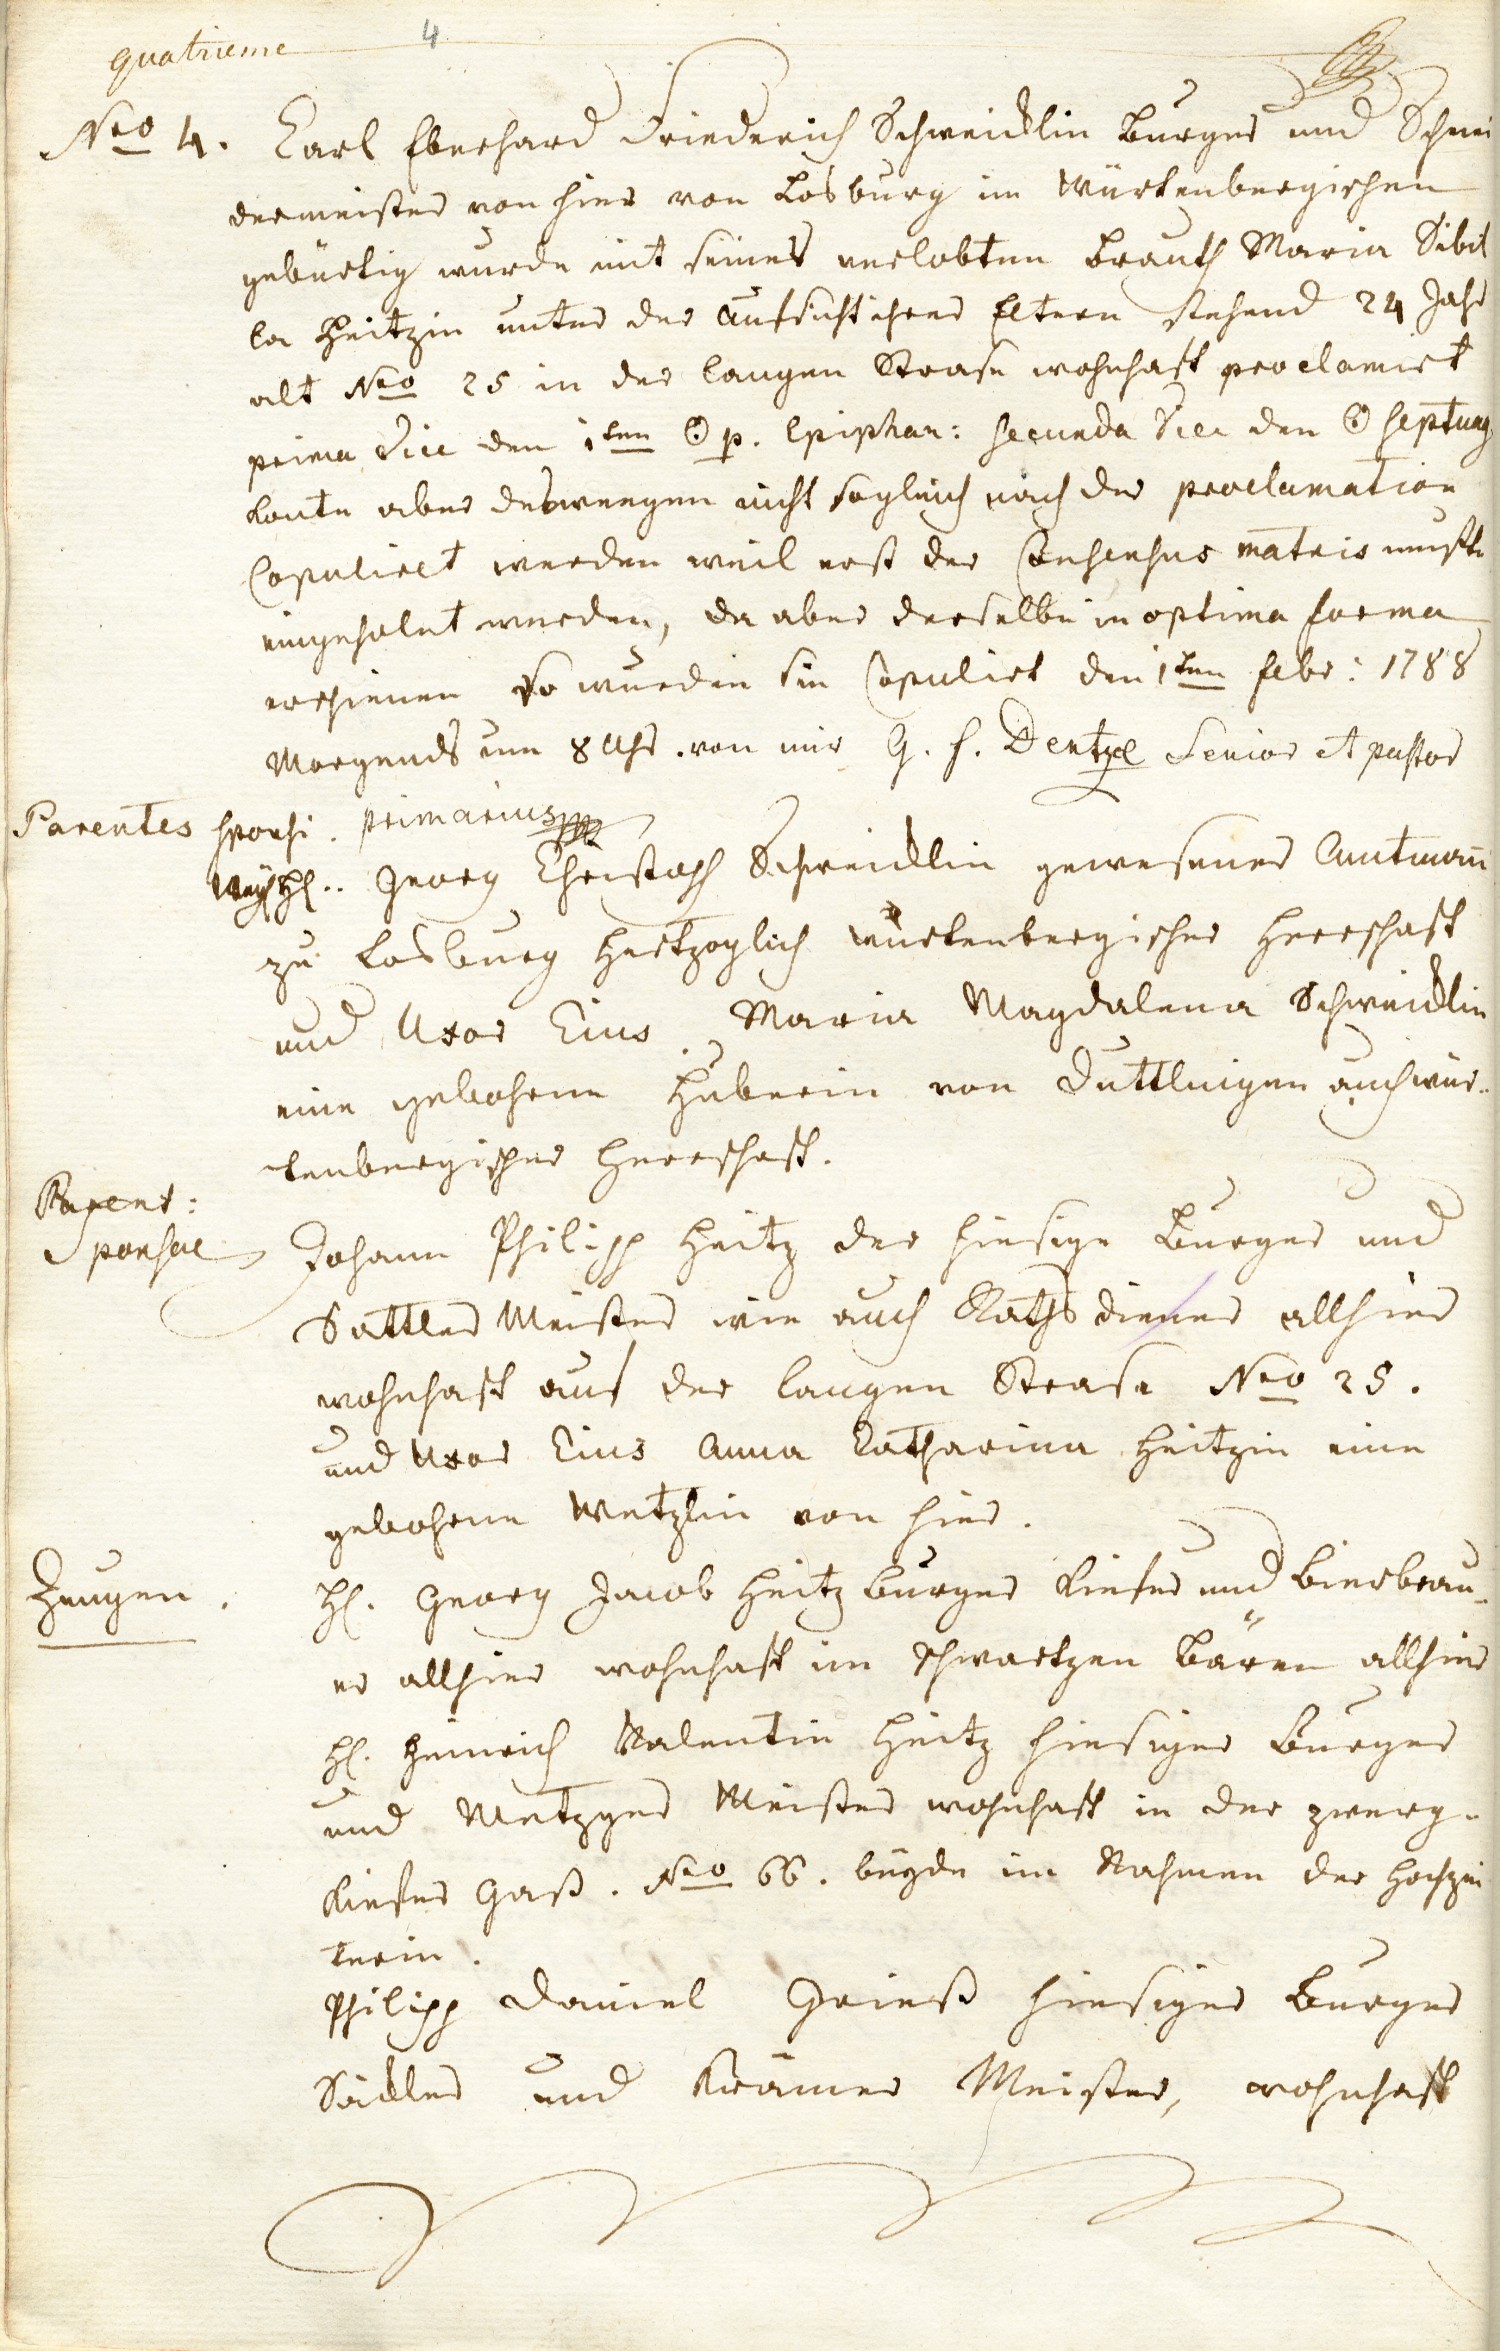 quatrieme 4
Nro 4. Carl Eberhard Friederich Schweicklin Burger und Schnei
dermeister von hier von Losburg im Würtenbergischen
gebürtig wurde mit seiner verlobten Brauth Maria Sibil
la Heitzin unter der Aufsicht ihrer Eltern stehend 24 Jahr
alt Nro 25 in der langen Strase wohnhaft proclamirt
prima Vice den 1ten ☉ p. Epiphan: secunda Vice den ☉ Septuag
konte aber deswegen nicht sogleich nach der proclamation
Copulirt werden weil erst der Consensus matris muste
eingeholet werden, da aber derselbe in optima forma
erschienen so wurden sie Copulirt den 1ten Febr: 1788
Morgends um 8 Uhr. von mir G. F. Dentzel Senior et pastor
primarius
Parentes Sponsi.
Weyl. H. Georg Christoph Schweicklin gewesener Amtmann
zu Losburg Hertzoglich würtenbergischer Herrschaft
und Uxor Eius. Maria Magdalena Schweicklin
eine gebohrne Huberin von Duttlingen auch wür-
tenbergischer Herrschaft.
Parent:
Sponsae Johann Philipp Heitz der hiesige Burger und
Sattler Meister wie auch Rathsdiener allhier
wohnhaft auf der langen Strase Nro 25.
und Uxor Eius Anna Catharina Heitzin eine
gebohrne Wetzlin von hier.
Zeugen. H. Georg Jacob Heitz Burger Kiefer und Bierbrau-
er allhier wohnhaft im schwartzen Bären allhier
H. Heinrich Valentin Heitz hiesiger Burger
und Metzger Meister wohnhaft in der zwerg-
kiefer Gaß. Nro 66. beyde im Nahmen der Hochzei
terin.
Philipp Daniel Grieß hiesiger Burger
Säckler und Krämer Meister, wohnhaft